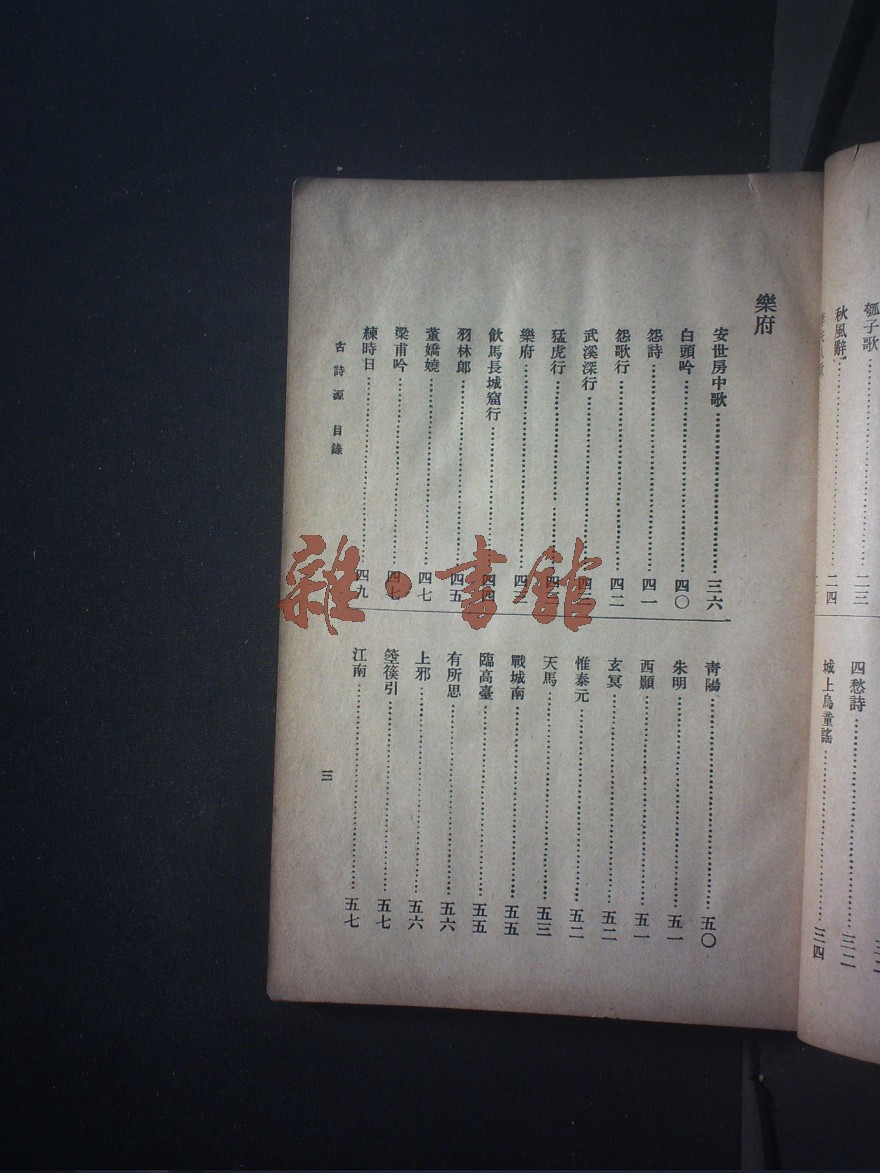 瓠子歌……二三
秋風辭……二四
四愁詩……三二
城上烏童謠……三四
樂府
安世房中歌……三六
白頭吟……四〇
怨詩……四一
怨歌行……四二
武溪深行
猛虎行
樂府
飲馬長城窟行
羽林郎……四五
董嬌嬈……四七
梁甫吟……四七
練時日……四九
青陽……五〇
朱明……五一
西顥……五一
玄冥……五二
惟泰元……五二
天馬……五三
戰城南……五五
臨高臺……五五
有所思……五六
上邪……五六
箜篌引……五七
江南……五七
古詩源 目錄
三
雜·書館